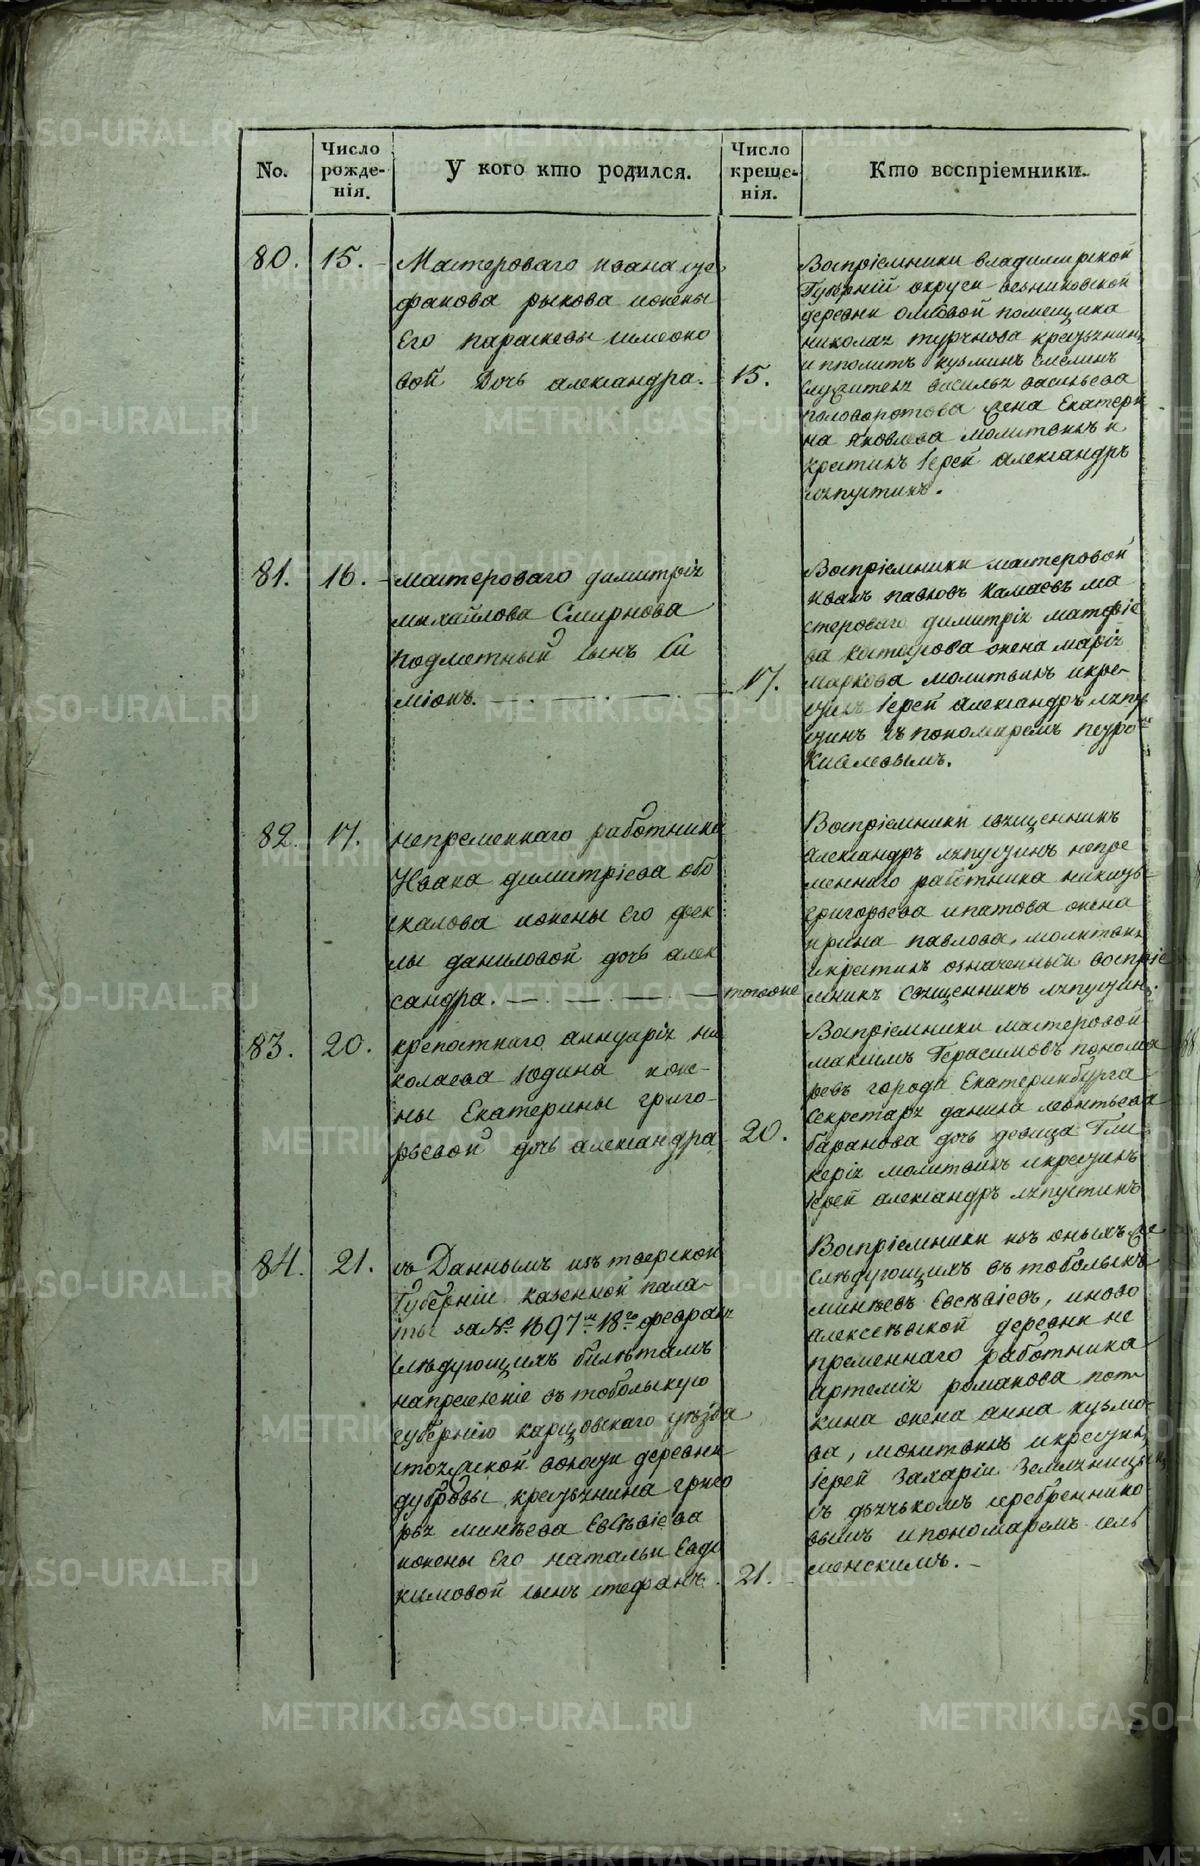 No.
Число рожде-нія.
У кого кто родился.
Число креще-нія.
Кто воспріемники.
80. 15.
Мастероваго Ивана
фанова рыкова ижены
Его параскевы симеоно
вой Дочь александра.
15.
Воспріемники владимирской
Губерній округи
деревни помещика
николая
ипполитъ кузминъ
служителя василья васильева
жена Екатери
на Яковлева молитвилъ и
крестилъ Іерей александръ
ляпустинъ.
81. 16.
мастероваго димитрія
михайлова Смирнова
подметный сынъ Си
міонъ.
17.
Воспріемники мастеровой
иванъ павловъ Камаевъ ма
стероваго димитрія матфіе
ва жена марія
маркова молитвилъ икре-
щилъ Іерей александръ ляпу
щинъ съ пономаремъ петро
Киселевымъ.
82. 17.
непременнаго работника
Ивана димитріева обо
скалова ижены Его фек
лы даниловой дочь алек
сандра.
тогоже
Воспріемники священникъ
александръ ляпущинъ непре
меннаго работника
григорьева ипатова жена
ирина павлова, молитвилъ
икрестилъ означенный воспріе
мникъ священникъ ляпущинъ.
83. 20.
крепостнаго аннуарія ни
колаева юдина жже-
ны Екатерины григо-
рьевой дочь александра
20.
Воспріемники мастеровой
максимъ Герасимовъ понома
ревъ города Екатеринбурга
секретаря данила леонтьева
баранова дочь девица Гли
керія молитвилъ икрещилъ
Іерей александръ ляпустинъ
84. 21.
съ Даннымъ изъ тверской
Губерніи казенной пала-
ты за № 1697м 18го февраля
следующихъ билетамъ
напреселеніе въ тобольскую
губернію уезда
волости деревни
дубровы крестьянина григо
рья минеева Евсевіева
ижены Его натальи Евдо
кимовой сынъ стефанъ.
21.
Воспріемники изъ оныхъ же
следующихъ въ тобольскъ
минеевъ Евсевіевъ, иново
алексеевской деревни не
пременнаго работника
артемія романова пот
кина жена анна кузмо-
ва, молитвилъ икрещилъ
Іерей Захарій Земляницынъ
съ дьячькомъ серебреннико
вымъ ипономаремъ сель
менскимъ.
METRIKI.GASO-URAL.RU